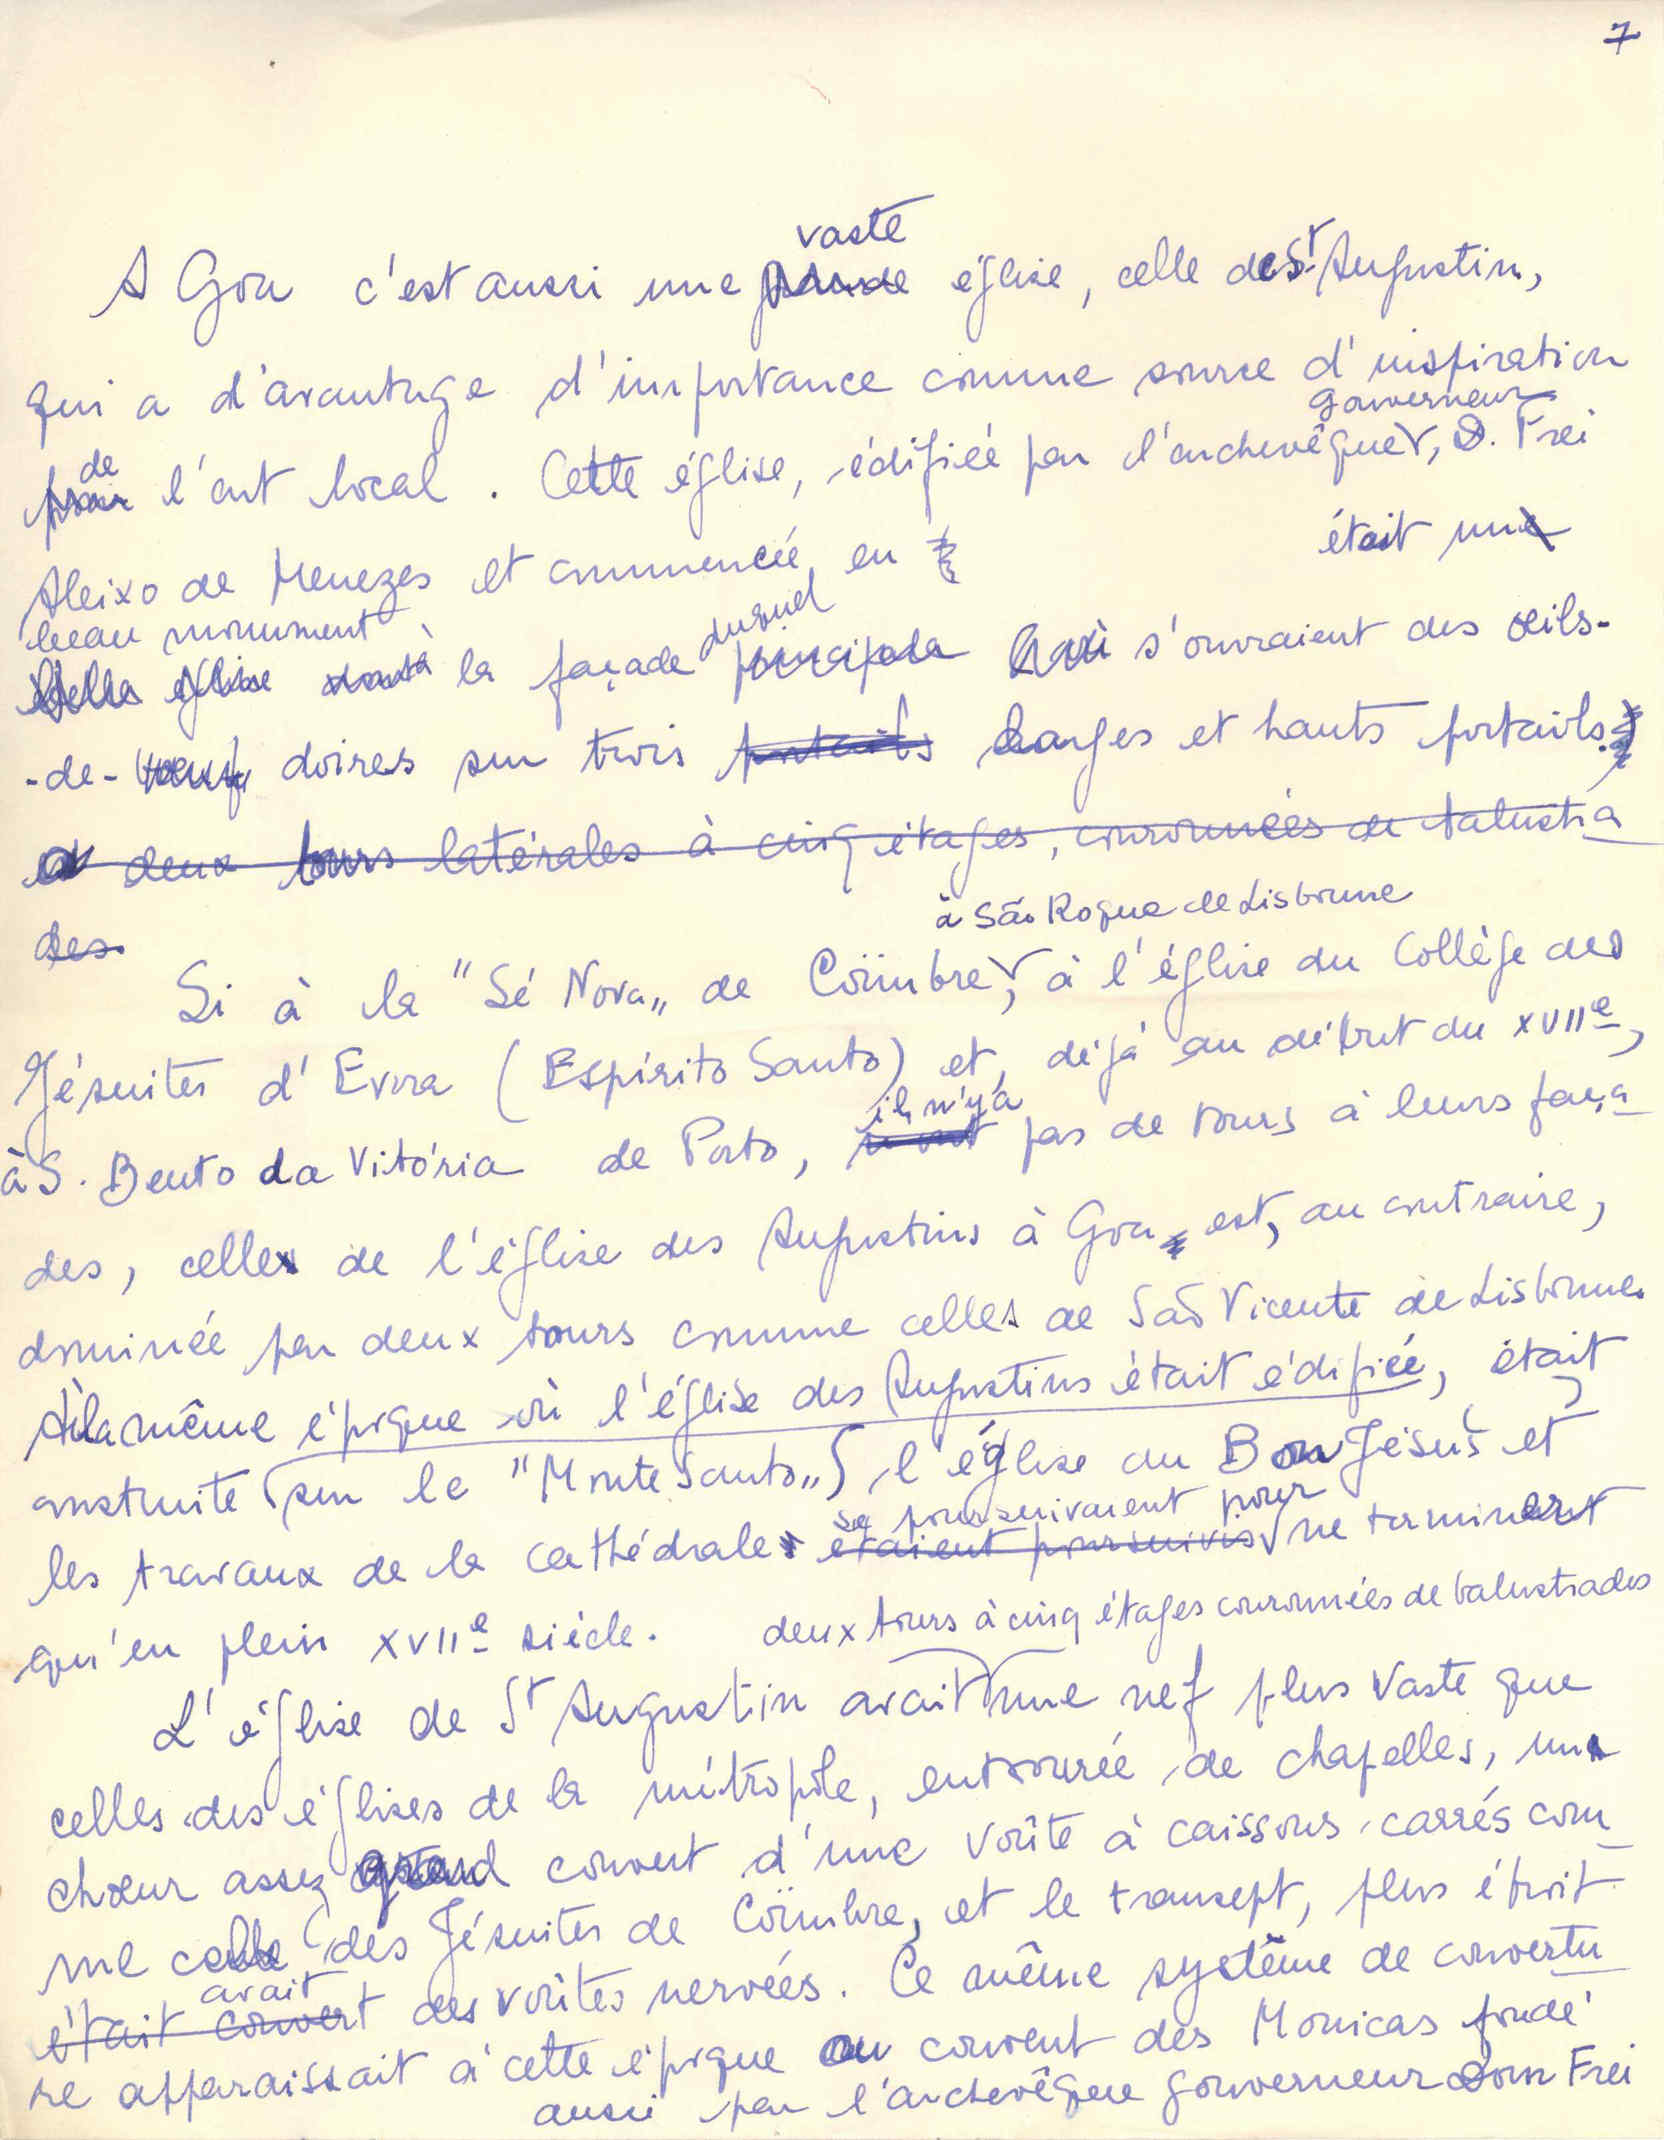 7
vaste
A Goa c'est aussi une grande église, celle de St Augustin,
qui a d'avantage d'importance comme source d'inspiration
gouverneur
de
pour l'art local. Cette église, édifiée par l'archevêque, D. Frei
était une
Aleixo de Menezes et commencée, en
beau monument à duquel
belle église dont à la façade principale s'ouvraient des oeils-
-de-boeuf doires sur trois portails larges et hauts portails
et deux tours latérales à cinq étages, couronnées de balustra
des.
à São Roque de Lisbonne
Si à la "Sé Nova" de Coïmbre, à l'église du Collège des
Jésuites d'Evora (Espírito Santo) et, déjà au début du XVIIe,
il n'y a
à S. Bento da Vitória de Porto, n'ont pas de tours à leurs faça
des, celle de l'église des Augustins à Goa est, au contraire,
dominée par deux tours comme celles de São Vicente de Lisbonne.
A la même époque où l'église des Augustins était édifiée, était
construite sur le "Monte Santo", l'église du Bon Jésus et
se poursuivaient pour
les travaux de la cathédrale étaient poursuivis ne terminent
qu'en plein XVIIe siècle.
deux tours à cinq étages couronnées de balustrades
L'église de St Augustin avait une nef plus vaste que
celles des églises de la métropole, entourée de chapelles, un
choeur assez grand couvert d'une voûte à caissons carrés com
me celle des Jésuites de Coïmbre, et le transept, plus étroit
avait
était couvert des voûtes nervées. Ce même système de couvertu
re apparaissait à cette époque au couvent des Monicas fondé
aussi par l'archevêque gouverneur Dom Frei